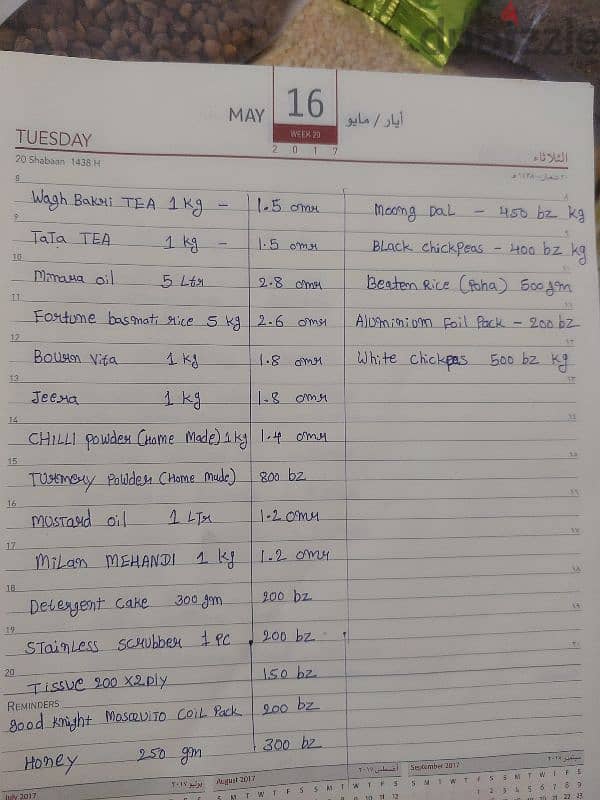 dubizzle
MAY 16 أيار / مايو
WEEK 20
2 0 1 7
TUESDAY الثلاثاء
20 Shabaan 1438 H ٢٠ شعبان - ١٤٣٨ هـ
8
Wagh Bakri TEA 1 Kg - 1.5 omr Moong Dal - 450 bz kg
9
TaTa TEA 1 kg - 1.5 omr Black chickpeas - 400 bz kg
10
Minara oil 5 Ltr 2.8 omr Beaten Rice (Poha) 500 gm
11
Fortune basmati rice 5 kg 2.6 omr Aluminiom Foil Pack - 200 bz
12
Bourn Vita 1 kg 1.8 omr White chickpeas 500 bz kg
13
Jeera 1 kg 1.8 omr
14
CHILLI Powder (Home Made) 1 kg 1.4 omr
15
Turmery Powder (Home Made) 800 bz
16
Mustard oil 1 LTr 1.2 omr
17
Milan MEHANDI 1 kg 1.2 omr
18
Detergent Cake 300 gm 200 bz
19
Stainless scrubber 1 PC 200 bz
20
Tissue 200 x 2 Ply 150 bz
REMINDERS
good knight Mosquito Coil Pack 200 bz
Honey 250 gm 300 bz
July 2017 يوليو ٢٠١٧ August 2017 أغسطس ٢٠١٧ September 2017 سبتمبر ٢٠١٧